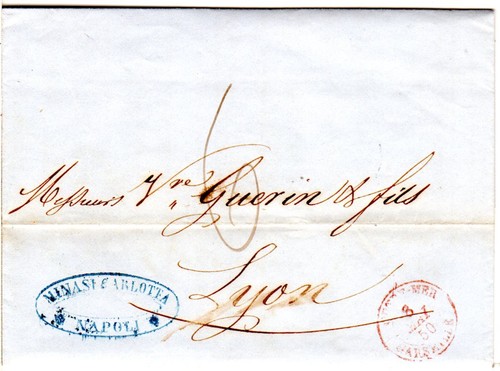 6
Messieurs Vve Guerin & fils
Lyon
MINASI E ARLOTTA
NAPOLI
MER
50
MARSEILLE